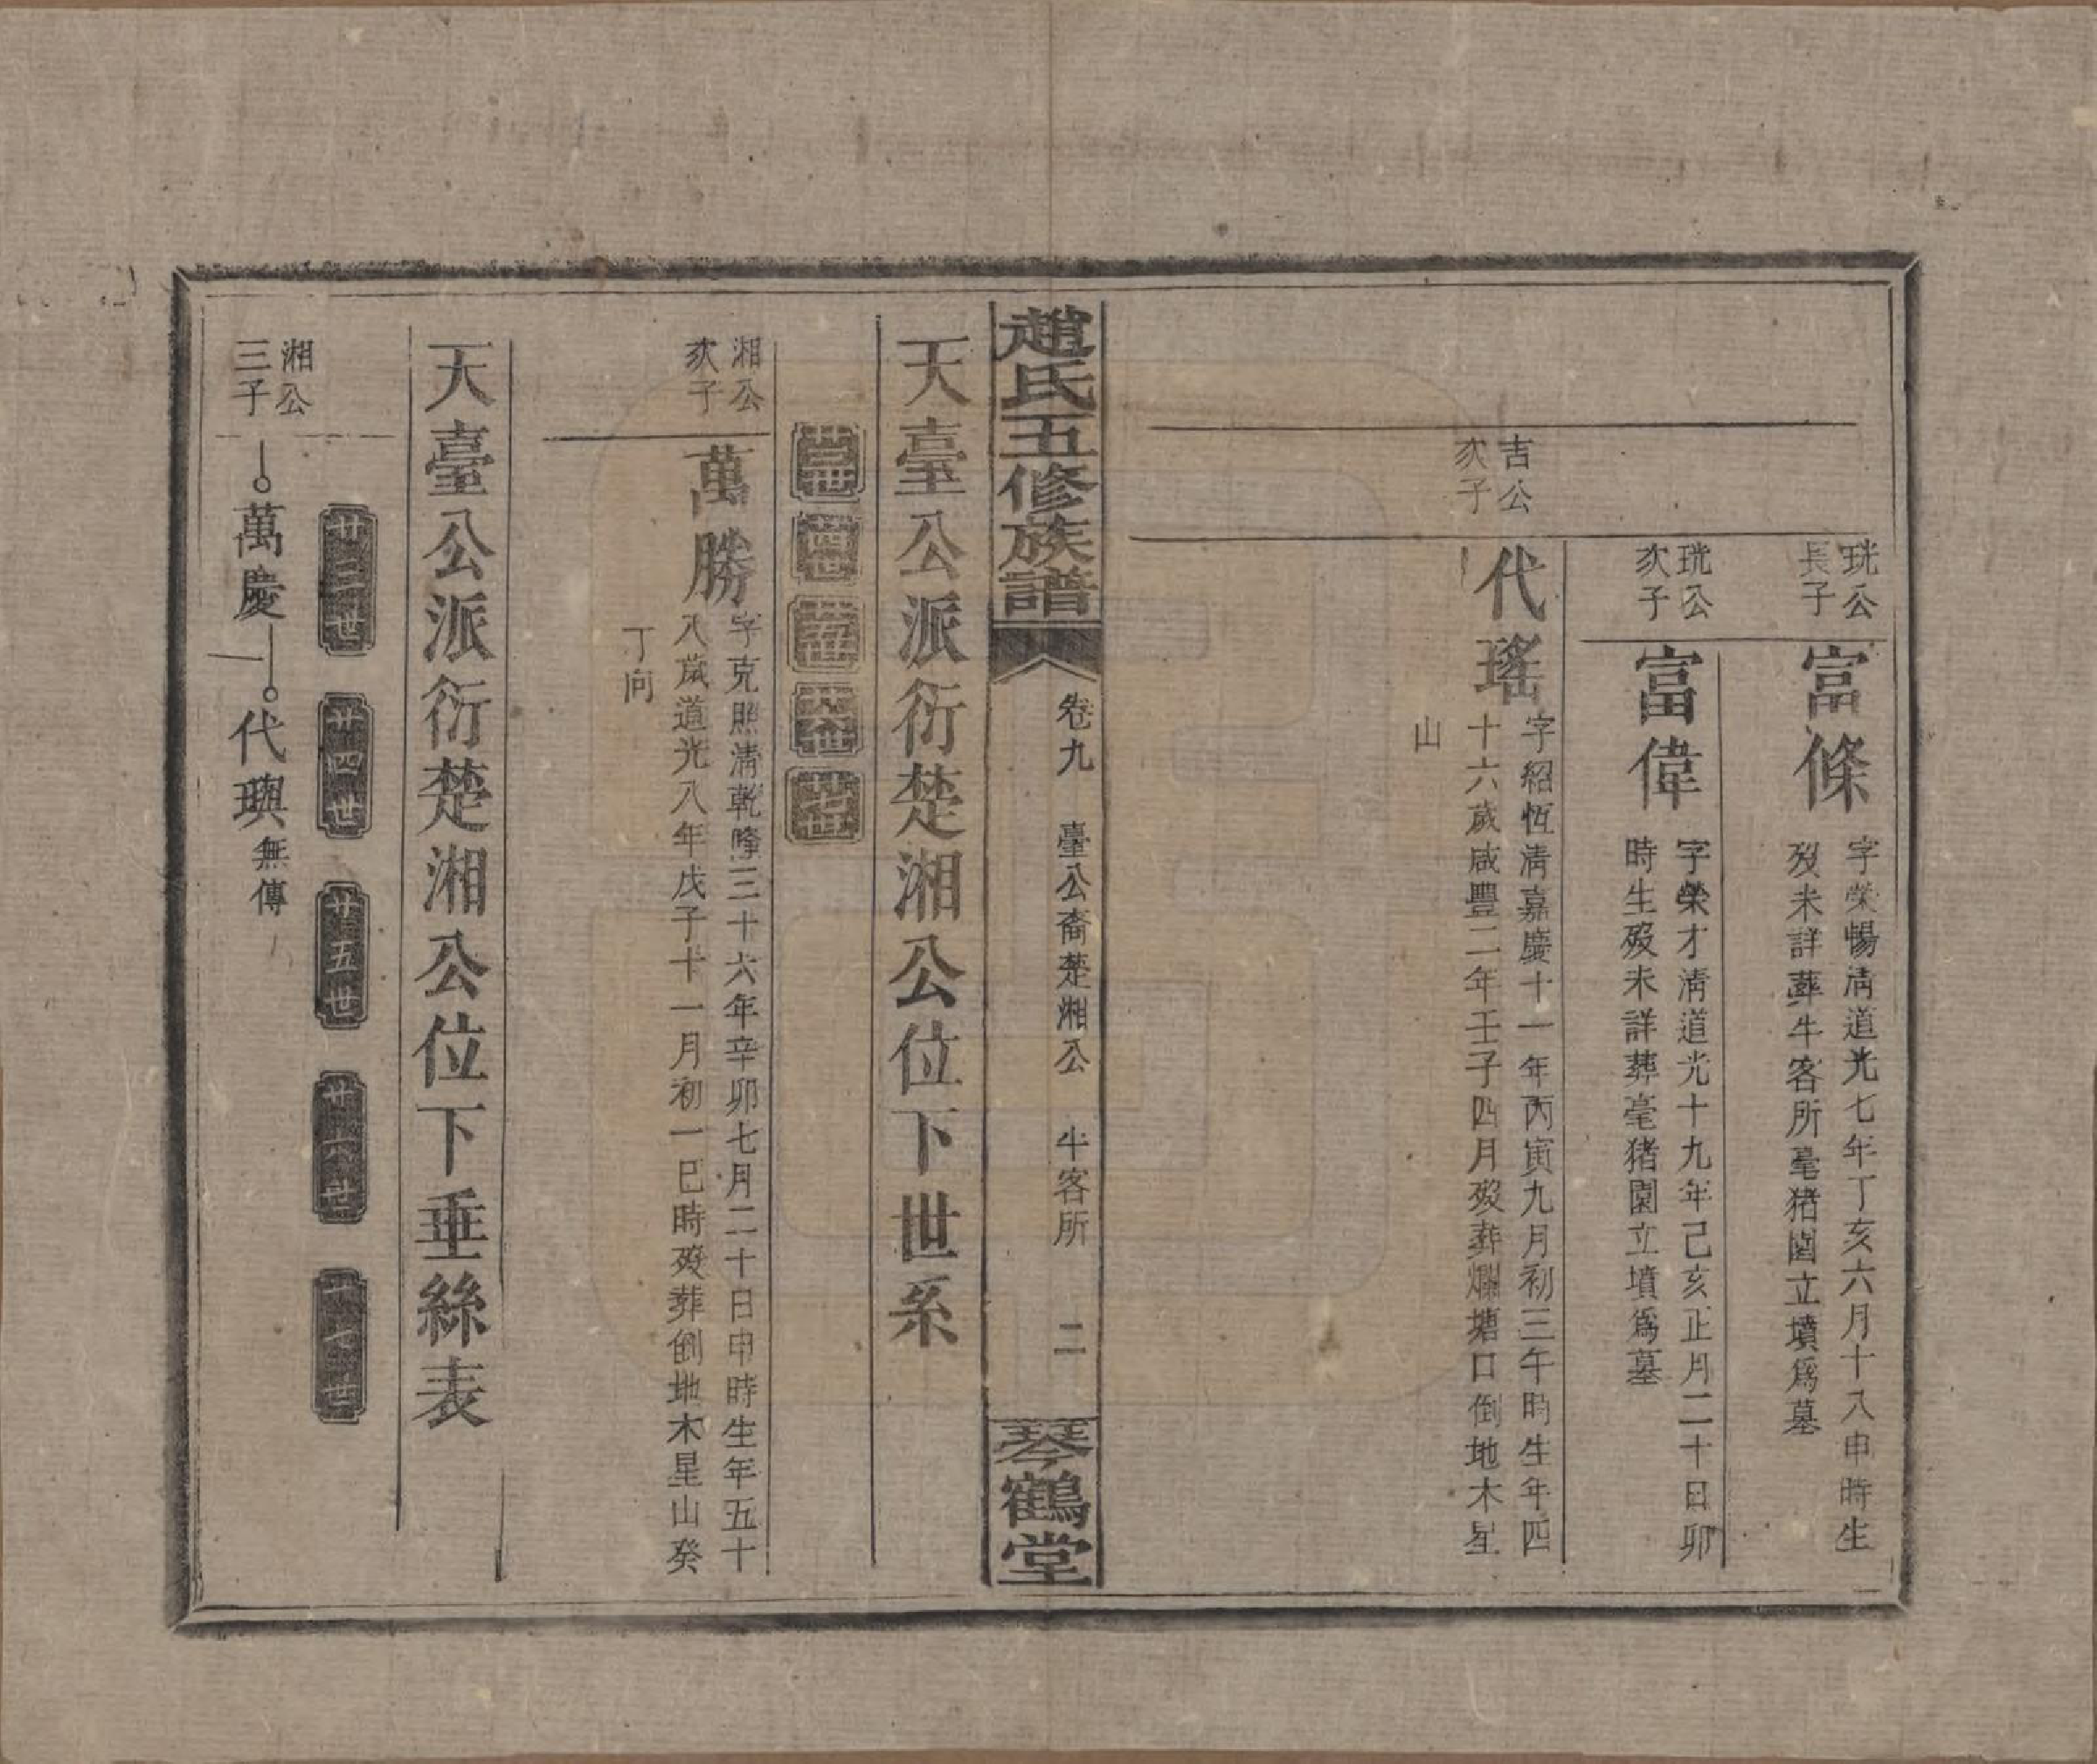 珖公
長子
富條
字榮暢清道光七年丁亥六月十八申時生
歿未詳葬牛客所毫猪園立墳爲墓
珖公
次子
富偉
字榮才清道光十九年己亥正月二十日卯
時生歿未詳葬毫猪園立墳爲墓
吉公
次子
代瑤
字紹恆清嘉慶十一年丙寅九月初三午時生年四
十六歲咸豐二年壬子四月歿葬爛塘口倒地木星
山
趙氏五修族譜
卷九 臺公裔楚湘公 牛客所 二
琴鶴堂
天臺公派衍楚湘公位下世系
廿三世 廿四世 廿五世 廿六世 廿七世
湘公
次子
萬勝
字克照清乾隆三十六年辛卯七月二十日申時生年五十
八歲道光八年戊子十一月初一巳時歿葬倒地木星山癸
丁向
天臺公派衍楚湘公位下垂絲表
廿三世 廿四世 廿五世 廿六世 廿七世
湘公
三子
萬慶 代璵 無傳